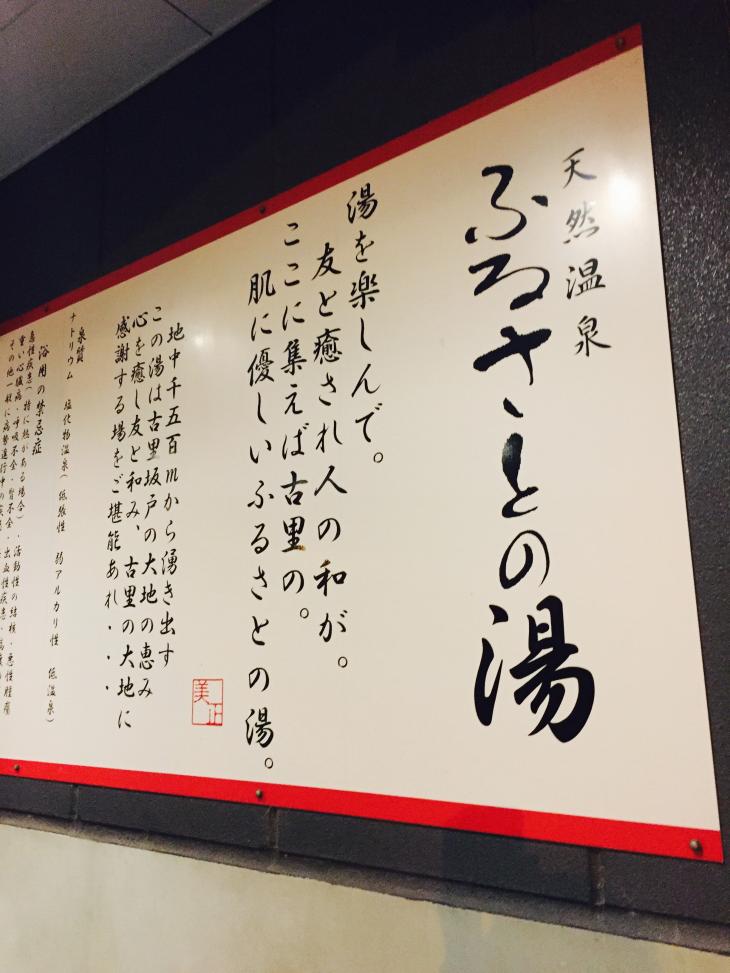 天然温泉
ふるさとの湯
湯を楽しんで。
友と癒され人の和が。
ここに集えば古里の。
肌に優しいふるさとの湯。
美正
地中千五百mから湧き出す
この湯は古里坂戸の大地の恵み
心を癒し友と和み、古里の大地に
感謝する場をご堪能あれ・・・
泉質
ナトリウム 塩化物温泉(低張性 弱アルカリ性 低温泉)
浴用の禁忌症
急性疾患(特に熱がある場合)・活動性の結核・悪性腫瘍
重い心臓病・呼吸不全・腎不全・出血性疾患・高度の
その他一般に病勢進行中の疾患